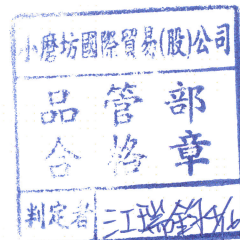 小磨坊國際貿易(股)公司
品管部
合格章
判定者 江瑞鈞